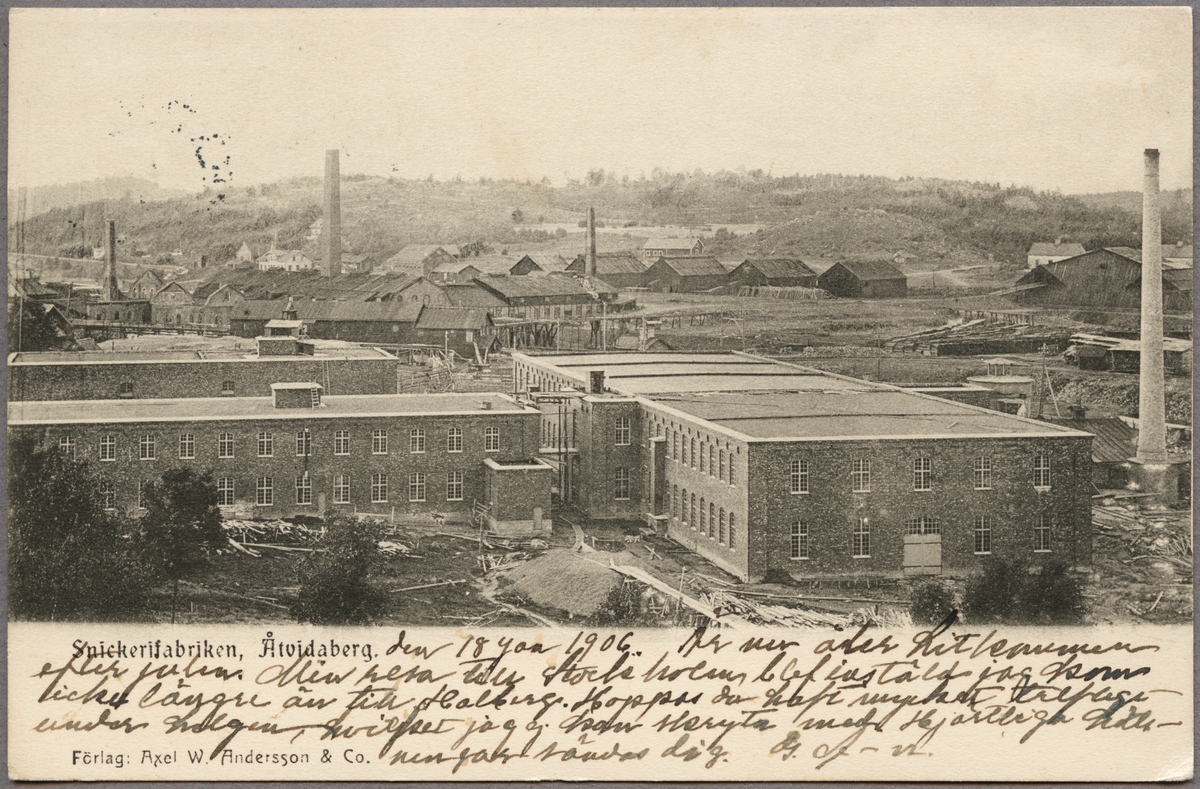 Snickerifabriken, Åtvidaberg. den 18 Jan 1906. Är nu åter hitkommen
efter julen. Min resa till Stockholm blef inställd jag kom
icke längre än till Halberg. Hoppas du haft mycket trefligt
under helgen, hvilket jag ej kan skryta med. Hjärtliga häls-
Förlag: Axel W. Andersson & Co. ningar sändas dig.